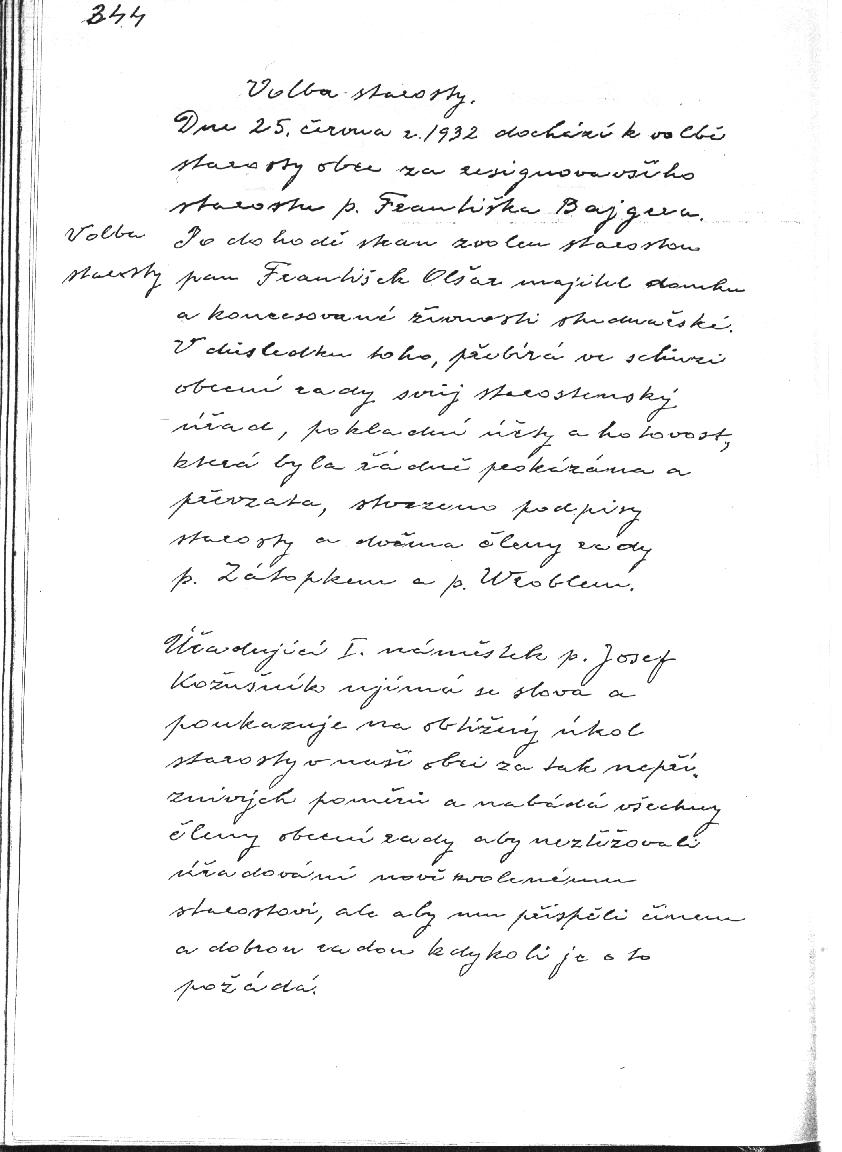 344
Volba starosty.
Dne 25. června r. 1932 dochází k volbě
starosty obce za resignovavšího
starostu p. Františka Bajgera.
Volba
starosty
Po dohodě stan zvolen starostou
pan František Olšar majitel domku
a koncesované živnosti studnařské.
V důsledku toho, přebírá ve schůzi
obecní rady svůj starostenský
úřad, pokladní účty a hotovost,
která byla řádně poukázána a
převzata, stvrzeno podpisy
starosty a dvěma členy rady
p. Zátopkem a p. Wroblem.
Úřadující I. náměstek p. Josef
Kožušník ujímá se slova a
poukazuje na obtížný úkol
starosty v naší obci za tak nepří-
znivých poměrů a nabádá všechny
členy obecní rady aby neztěžovali
úřadování nově zvolenému
starostovi, ale aby mu přispěli činem
a dobrou radou kdykoli je o to
požádá.